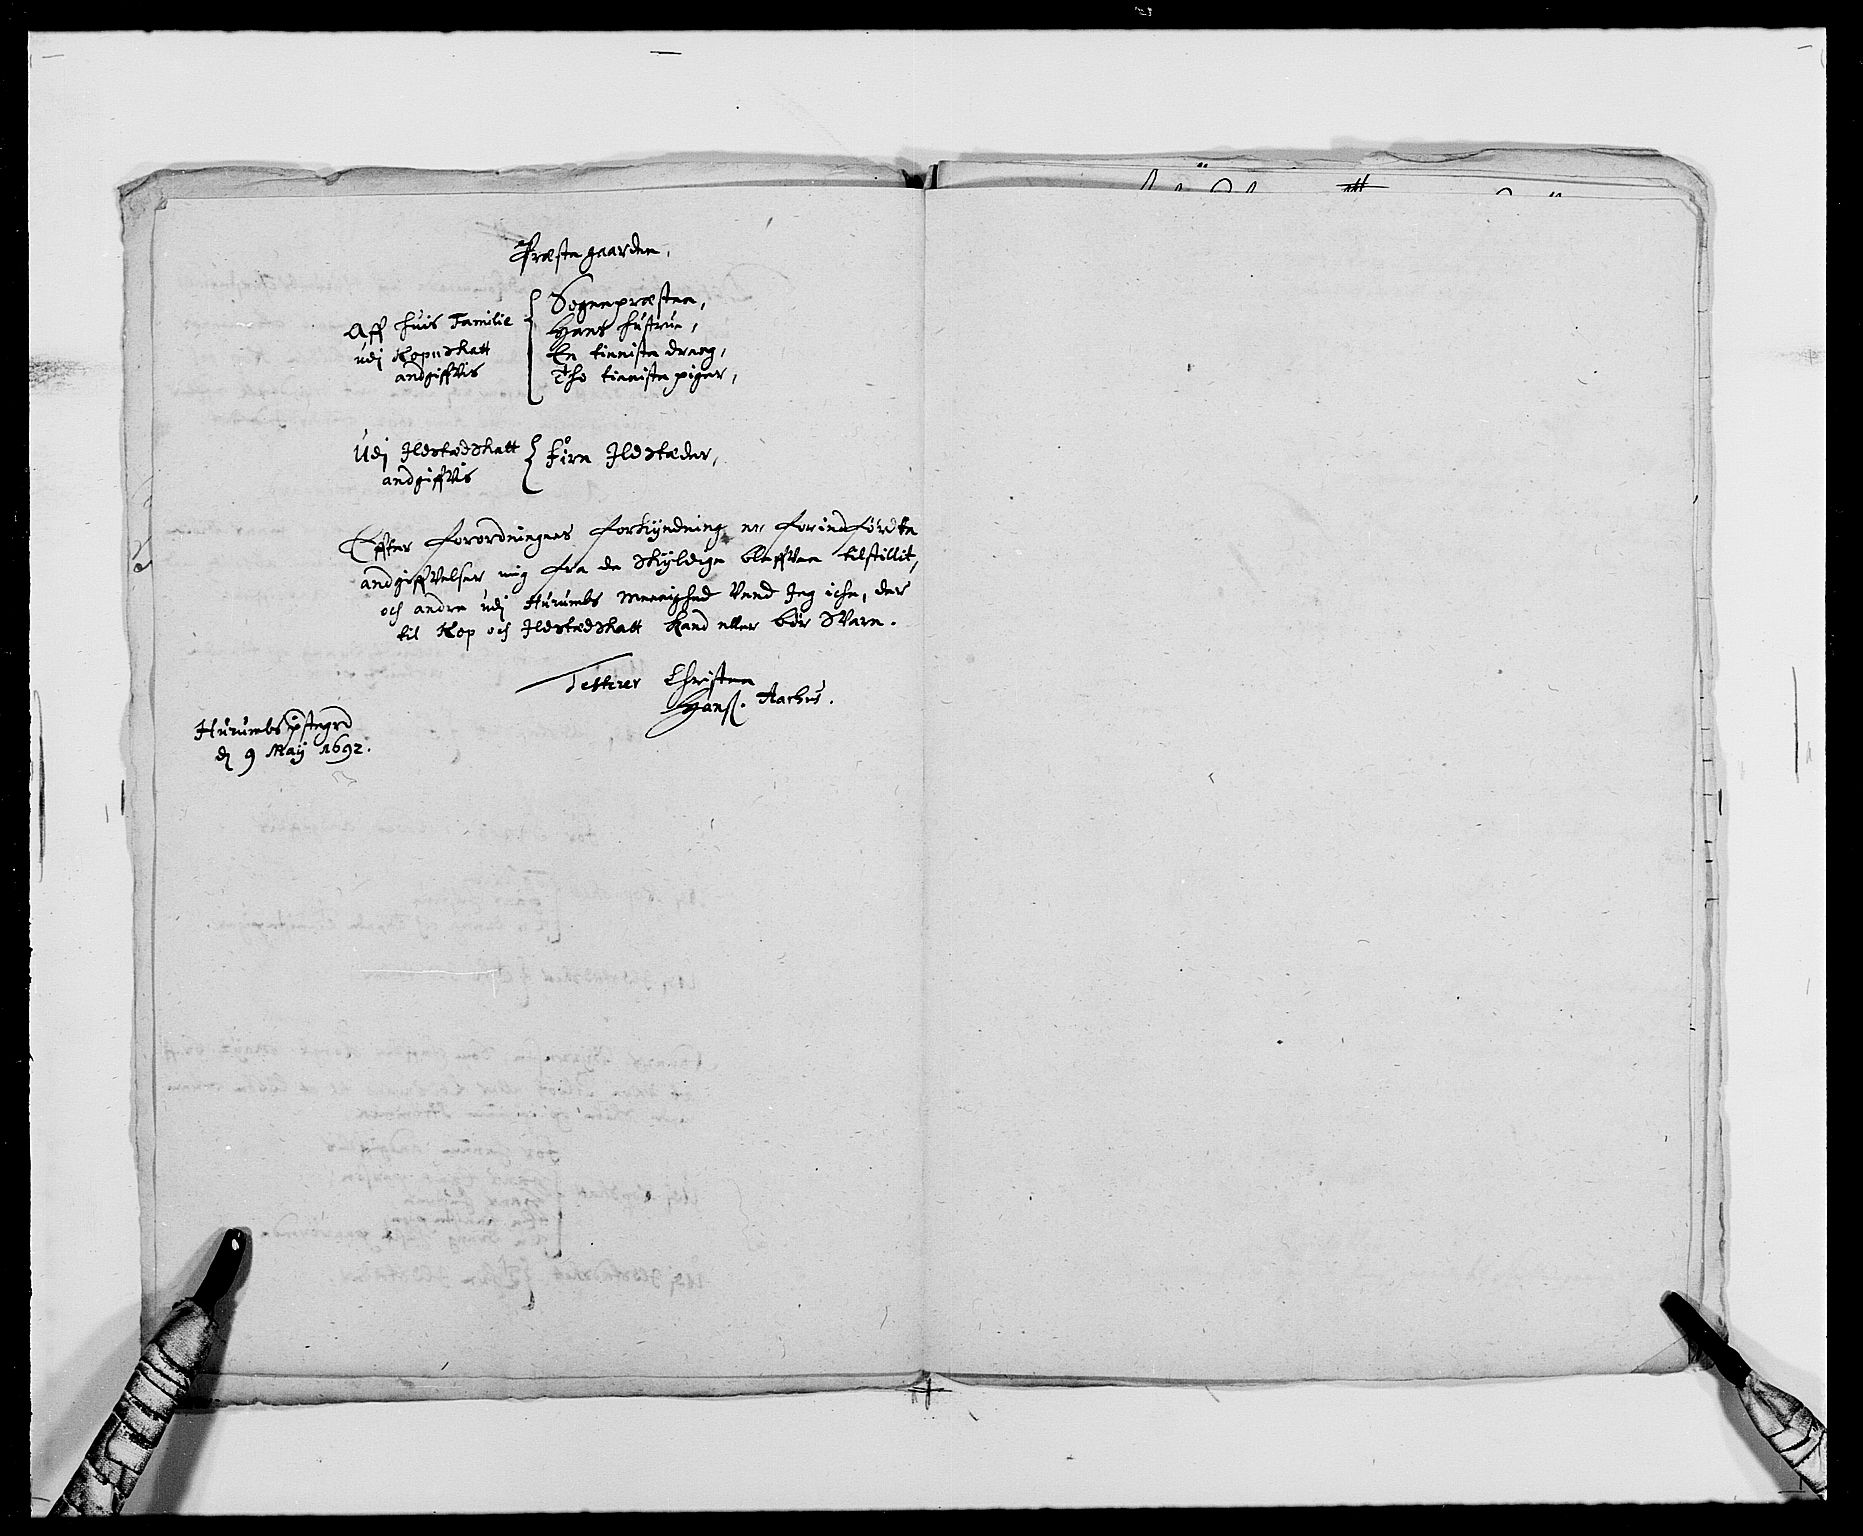 Præste gaarden,
Aff huis Familie
udj Kopskatt
andgiffvis
Sognepræsten,
Hans hustrue,
En tieniste dreng,
Tho tieniste piger,
Udj Ildstædskatt
andgiffvis
Fire Ildstæder,
Effter forordningens forkyndning er forindførdte
andgiffvelser mig fra de skyldige bleffven tilstillit,
och andre udj Hurumbs menighed Veed Jeg iche, der
til Kop och Ildstædskatt kand eller bør Svare.
Testerer Christen
Hanß. Aarhus.
Hurumbs pstegrd
dj 9 Maij 1692.